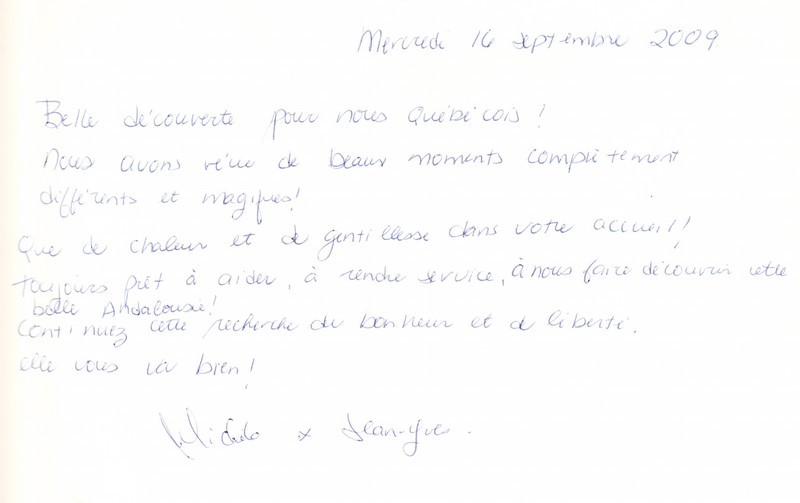 Mercredi 16 septembre 2009
Belle découverte pour nous Québécois !
Nous avons vécu de beaux moments complètement
différents et magiques!
Que de chaleur et de gentillesse dans votre accueil!
Toujours prêt à aider, à rendre service, à nous faire découvrir cette
belle Andalousie!
Continuez cette recherche du bonheur et de liberté.
elle vous va bien!
Jean-Yves.